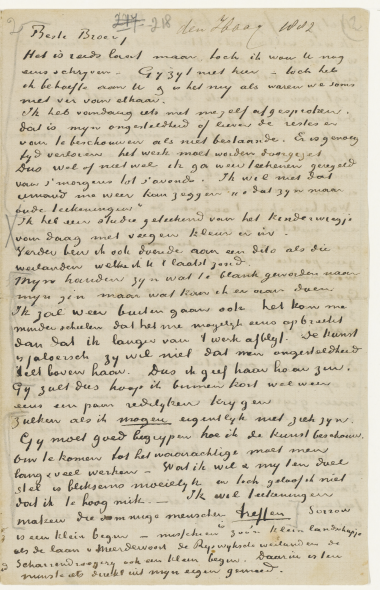 den Haag 1882
Beste Broer,
Het is reeds laat maar toch ik wou U nog
eens schrijven. Gy zyt niet hier — toch heb
ik behoefte aan U & is het my als waren we soms
niet ver van elkaar.
Ik heb vandaag iets met mezelf afgesproken.
dat is myn ongesteldheid of liever de restes er
van te beschouwen als niet bestaande. Er is genoeg
tyd verloren het werk moet worden doorgezet
Dus wel of niet wel ik ga weer teekenen geregeld
van s'morgens tot s'avonds. Ik wil niet dat
iemand me weer kan zeggen „o dat zyn maar
oude teekeningen"
Ik heb een studie geteekend van het kinderwiegje
van daag met vegen kleur er in.
Verder ben ik ook doende aan een dito als die
weilanden welke ik U 't laatst zond.
Myn handen zyn wat te blank geworden naar
myn zin maar wat kan ik er aan doen.
Ik zal weer buiten gaan ook het kan me
minder schelen dat het me mogelyk eens opbreekt
dan dat ik langer van 't werk afblyf. De kunst
is jaloersch zy wil niet dat men ongesteldheid
kiest boven haar. Dus ik geef haar haar zin.
Gy zult dus hoop ik binnen kort wel weer
eens een paar redelyken krygen
Zulken als ik mogen eigentlyk niet ziek zyn.
Gy moet goed begrypen hoe ik de kunst beschouw.
Om te komen tot het waarachtige moet men
lang & veel werken — Wat ik wil & my ten doel
stel is bliksems moeielyk en toch geloof ik niet
dat ik te hoog mik. — Ik wil teekeningen
maken die sommige menschen treffen Sorrow
is een klein begin — misschien zoo'n klein landschapje
als de laan v Meerdervoort de Ryswyksche weilanden de
Scharrendroogery ook een klein begin. Daarin is ten
minste iets direkt uit myn eigen gemoed.